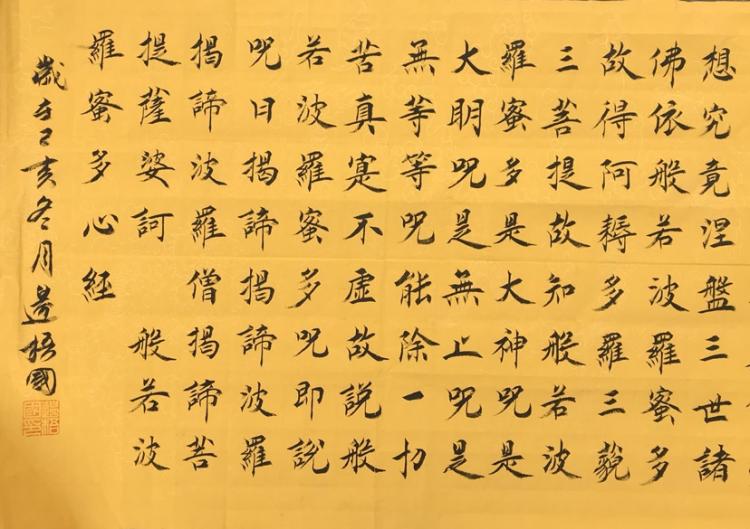 想究竟涅盤三世諸
佛依般若波羅蜜多
故得阿耨多羅三藐
三菩提故知般若波
羅蜜多是大神呪是
大明呪是無上呪是
無等等呪能除一切
苦真寔不虛故說般
若波羅蜜多呪即說
呪曰揭諦揭諦波羅
揭諦波羅僧揭諦菩
提薩婆訶 般若波
羅蜜多心経
歲在己亥冬月國